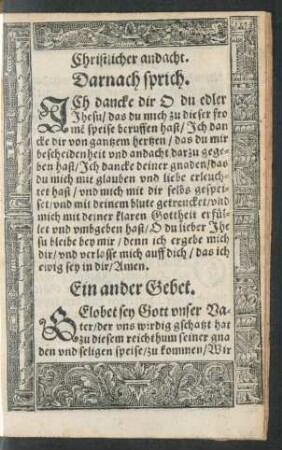 Christlicher andacht.
Darnach sprich.
ICh dancke dir O du edler
Jhesu/ das du mich zu dieser fro
mẽ speise beruffen hast/ Ich dan
cke dir von gantzem hertzen / das du mir
bescheidenheit vnd andacht darzu gege-
ben hast/ Ich dancke deiner gnaden/das
du mich mit glauben vnd liebe erleuch-
tet hast / vnd mich mit dir selbs gespei-
set/vnd mit deinem blute getrencket/vnd
mich mit deiner klaren Gottheit erfül-
let vnd vmbgeben hast/O du lieber Jhe
su bleibe bey mir / denn ich ergebe mich
dir/ vnd verlasse mich auff dich / das ich
ewig sey in dir/ Amen.
Ein ander Gebet.
GElobet sey Gott vnser Va-
ter/der vns wirdig gschatzt hat
zu diesem reichthum seiner gna
den vnd seligen speise/zu kommen/Wir